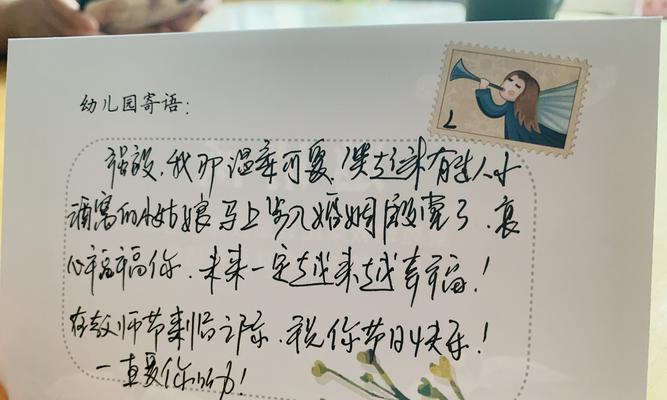 幼儿园寄语：
我那温柔可爱，
酒窝的小姑娘马上步入婚姻殿堂了，衷
心祝福你，未来一定越来越幸福！
在教师节来临之际，祝你节日快乐！
一直爱你的